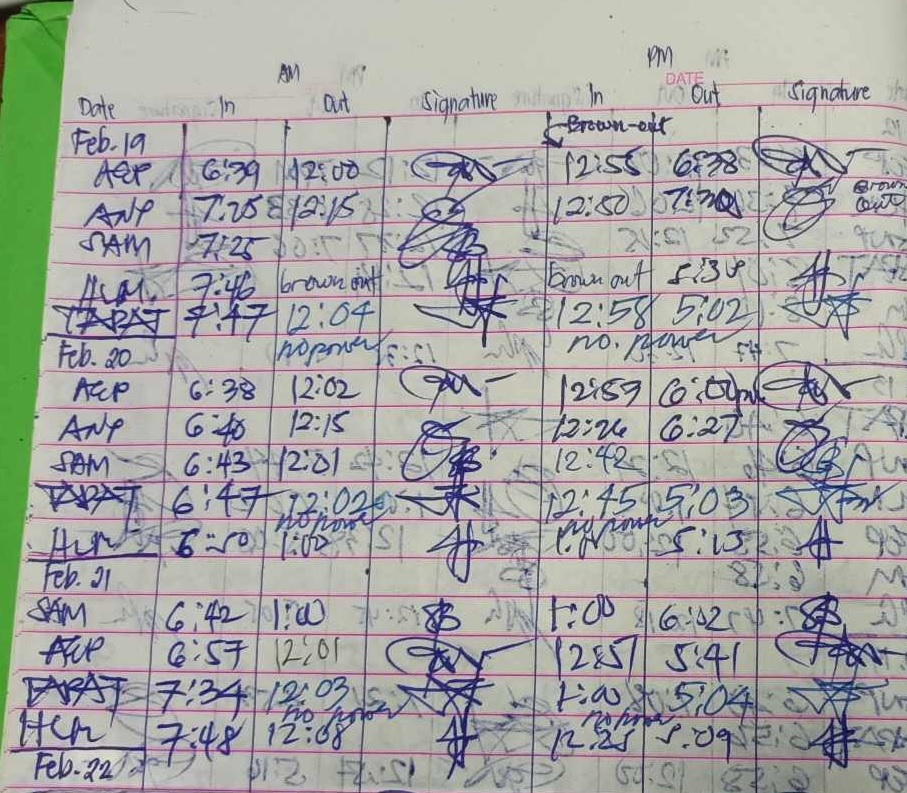 AM PM
DATE
Date In Out Signature In Out Signature
Feb. 19 Brown-out
AEP 6:39 12:00 12:55 6:38
ANP 7:25 12:15 12:50 7:30 Brown out
SAM 7:25
HLM 7:46 brown out brown out 5:38
TAPAT 7:47 12:04 12:58 5:02
Feb. 20 no power no power
AEP 6:38 12:02 12:59 6:00pm
ANP 6:40 12:15 12:26 6:27
SAM 6:43 12:01 12:42
TAPAT 6:47 12:02 12:45 5:03
no power no power
HLM 6:50 1:00 5:13
Feb. 21
SAM 6:42 1:00 1:00 6:02
AEP 6:57 12:01 12:51 5:41
TAPAT 7:34 12:03 1:00 5:04
no power no power
HLM 7:48 12:08 12:25 5:09
Feb. 22